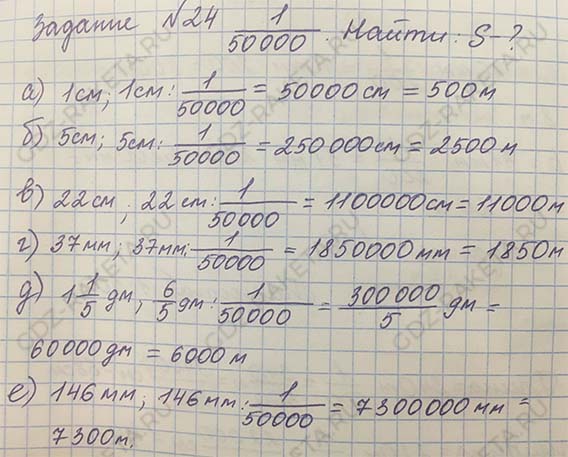 Задание №24 1/50000. Найти: S-?
а) 1см; 1см : 1/50000 = 50000 см = 500 м
б) 5см; 5см : 1/50000 = 250 000см = 2500 м
в) 22 см ; 22 см : 1/50000 = 1100000см = 11000м
г) 37мм; 37мм : 1/50000 = 1850000 мм = 1850м
д) 1 1/5 дм ; 6/5 дм : 1/50000 = 300 000/5 дм =
60000 дм = 6000 м
е) 146 мм ; 146 мм : 1/50000 = 7300000 мм =
7300м.
GDZ-RAKETA.RU